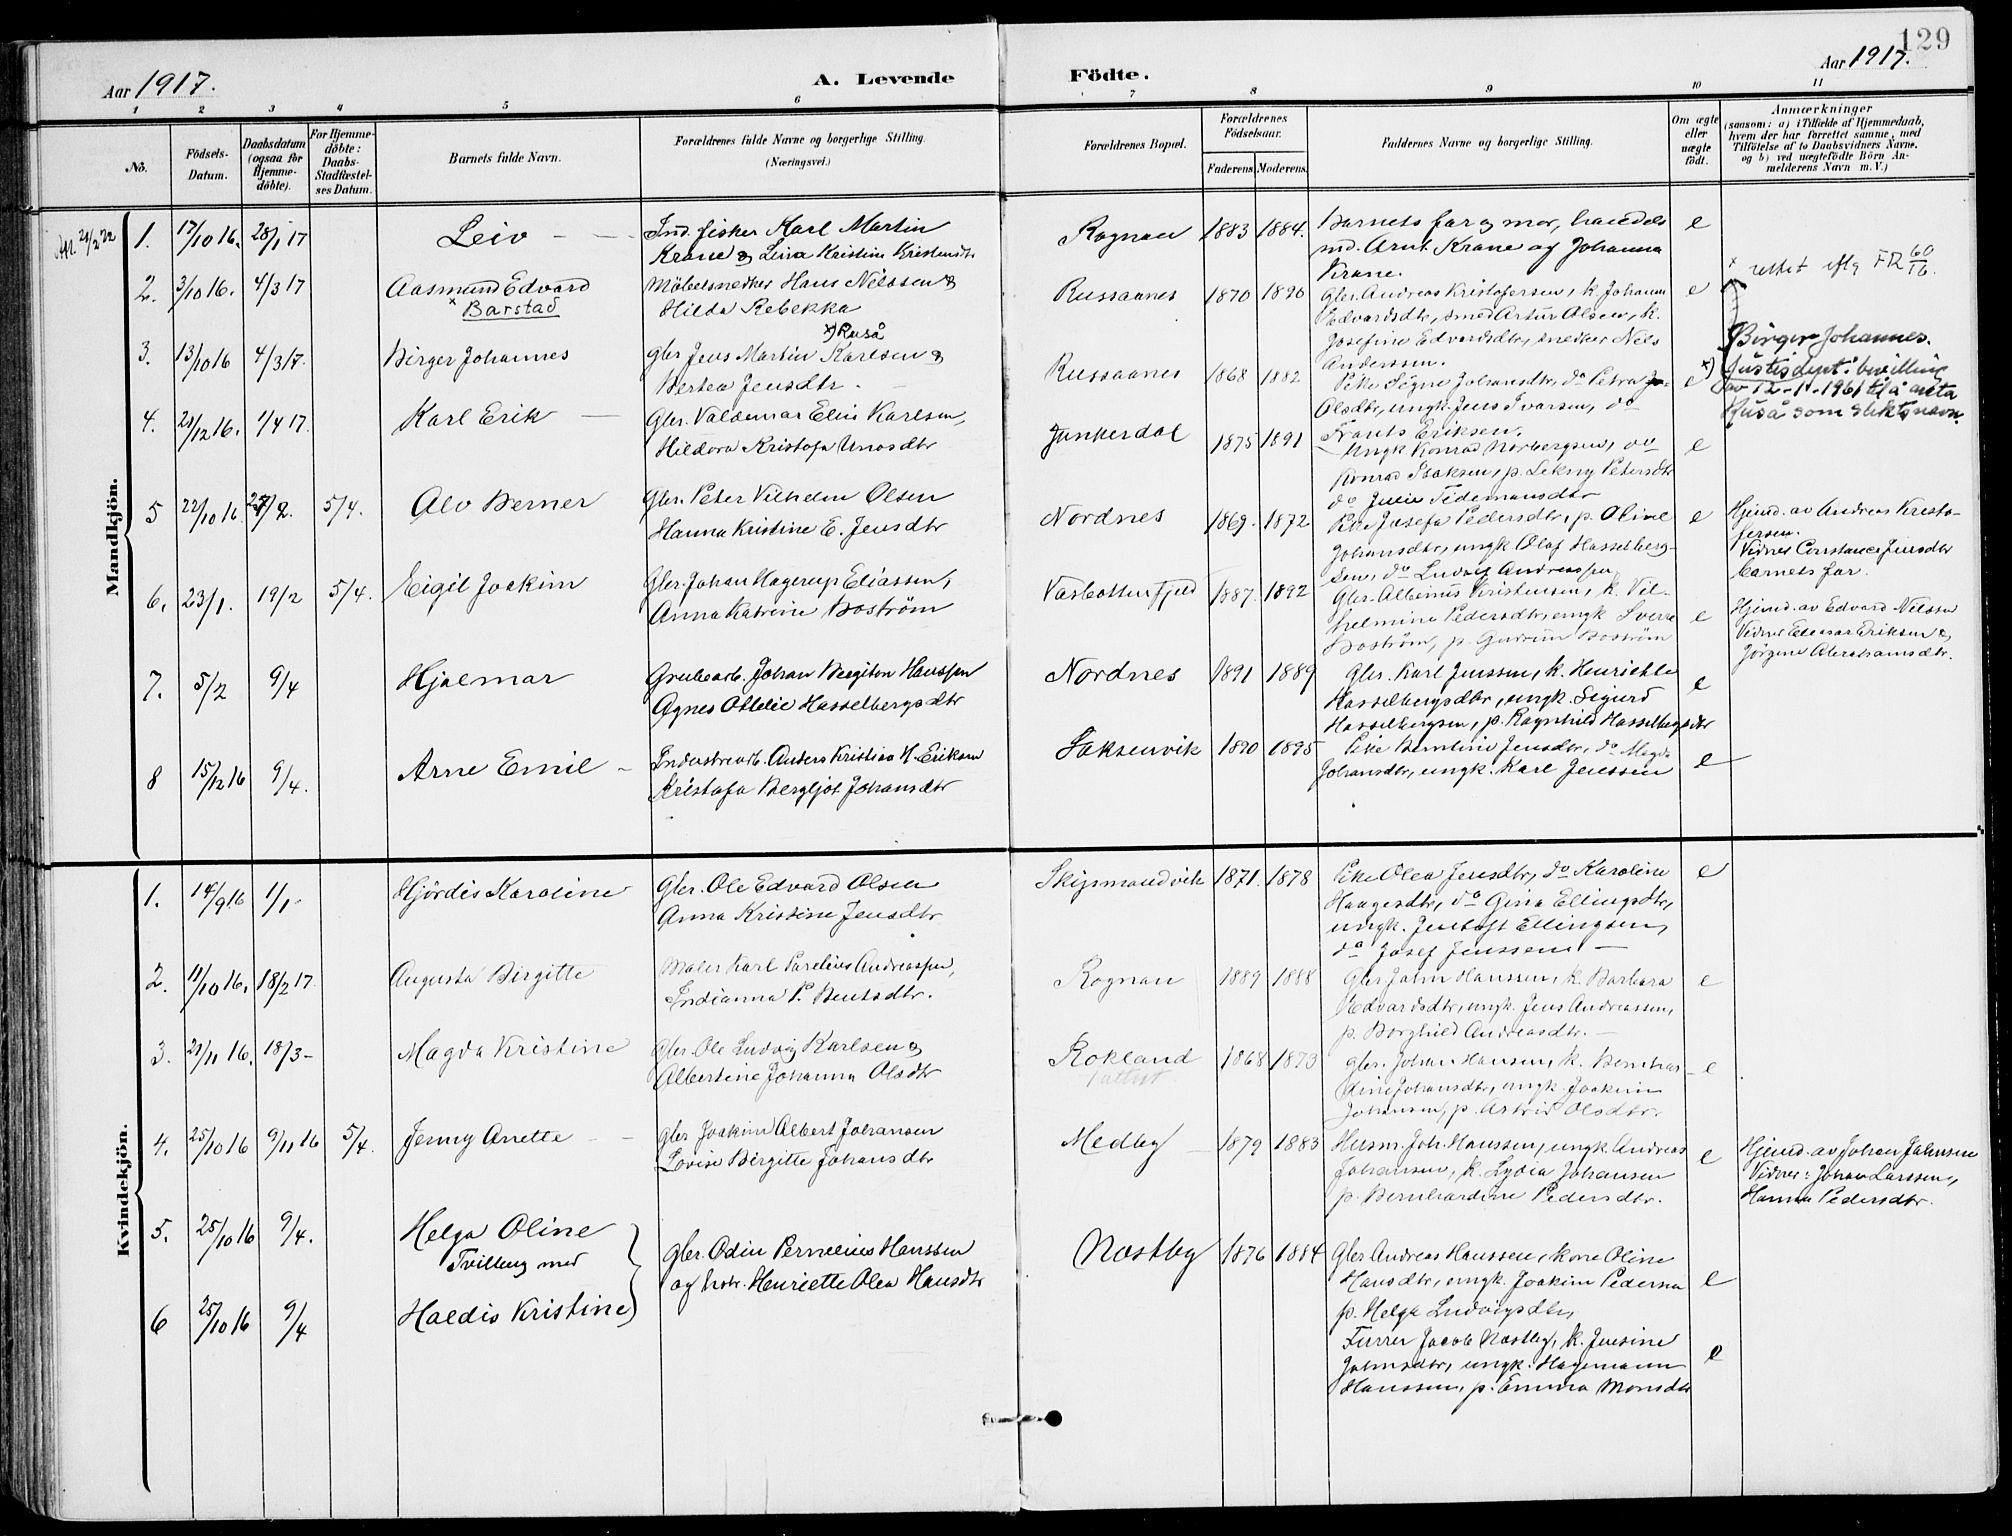 129
Aar 1917.
A. Levende
Födte.
Aar 1917.
1 2 3 4 5 6 7 8 9 10 11
No.
Födsels-
Datum.
Daabsdatum
(ogsaa for
Hjemme-
döbte).
For Hjemme-
döbte:
Daabs-
Stadfæstel-
ses Datum.
Barnets fulde Navn.
Forældrenes fulde Navne og borgerlige Stilling.
(Næringsvei.)
Forældrenes Bopæl.
Forældrenes
Födselsaar.
Faderens. Moderens.
Faddernes Navne og borgerlige Stilling.
Om ægte
eller
uægte
födt.
Anmærkninger
(saasom: a) i Tilfælde af Hjemmedaab,
hvem der har forrettet samme, med
Tilföielse af to Daabsvidners Navne,
og b) ved uægtefödte Börn An-
melderens Navn m. V.)
Mandkjön.
1. 17/10 16. 28/1 17 Leiv
Ind. fisker Karl Martin
Krane & Lina Kristine
Rognan 1883 1884.
Barnets far og mor, handels
md. Arnt Krane og Johanna
Krane.
e
2. 3/10 16. 4/3 17 Aasmund Edvard
x Barstad
Möbelsnedker Hans Nilssen &
Hilda Rebekka
Russaanes 1870 1890
Gbr. Andreas Kristofersen, k. Johanna
Edvardsdtr, smed Artur Olsen, k.
Josefine Edvardsdtr, snedker Nils
Anderssen.
e
x rettet eflg FR 60/16.
3. 13/10 16 4/3 17. Birger Johannes
x) Ruså
Gbr Jens Martin Karlsen &
Bertea Jensdtr.
Russaanes 1868 1882
Pike Signe Johansdtr, do Petra
Olsdtr, ungk. Jens Ivarsen, do
Frants Eriksen.
e
Birger Johannes.
x) Justisdept.s bevilling
av 12-1-1961 til å anta
Ruså som slektsnavn.
4. 21/12 16. 1/4 17. Karl Erik
Gbr. Valdemar Elius Karlsen,
Hildora Kristofa Unosdtr
Junkerdal 1875 1891
Ungk Konrad Norbergsen, do
Konrad Isaksen, p. Petersdtr
do Julie Tidemansdtr
e
5 22/10 16 2. 5/4. Alv Berner
Gbr. Peter Vilhelm Olsen
Hanna Kristine E. Jensdtr
Nordnes 1869. 1872
Pike Josefa Pedersdtr, p. Oline
Johansdtr, ungk Olaf Hasselberg-
sen, do Ludvig Andreassen
e
Hjemd. av Andreas Kristo-
fersen.
Vidner Constance Jensdtr
barnets far.
6. 23/1. 19/2 5/4. Eigil Joakim
Gbr. Johan Hagerup Eliassen,
Anna Katrine Boström
Vasbottenfjeld 1887. 1892
Gbr. Albinus Kristensen, k. Vil-
helmine Pedersdtr, ungk Sverre
Boström, p. Gudrun Boström
e
Hjemd. av Edvard Nilssen
Vidner Edvard Eriksen &
Jörgine Abrahamsdtr.
7. 5/2 9/4 Hjalmar
Grubearb. Johan Bergiton Hanssen
Agnes Otelie Hasselbergsdtr
Nordnes 1891 1889
Gbr. Karl Jenssen, k. Henriette
Hasselbergsdtr, ungk. Sigurd
Hasselbergsen, p. Ragnhild Hasselbergsdtr
e
8 15/12 16 9/4. Arne Emil
Industriearb. Anders Kristian H. Eriksen
Kristofa Bergljot Johansdtr
Saksenvik 1890 1895
Pike Berntine Jensdtr, do Magda
Johansdtr, ungk. Karl Jenssen
e
Kvindekjön.
1. 14/9 16 1/1. Hjördis Karoline
Gbr. Ole Edvard Olsen
Anna Kristine Jensdtr
Skipmandvik 1871. 1878
Pike Olea Jensdtr, do Karoline
Haagesdtr, do Gina Ellingsdtr,
ungk. Jentoft Ellingsen,
do Josef Jenssen
e
2. 11/10 16. 18/2 17. Augusta Birgitte
Maler Karl Parelius Andreassen,
Indianna P. Bentsdtr.
Rognan 1889 1888
Gbr John Hanssen, k. Barbara
Edvardsdtr, ungk. Jens Andreassen,
p. Borghild Andreasdtr.
e
3. 21/11 16. 18/3 Magda Kristine
Gbr. Ole Ludvig Karlsen &
Albertine Johanna Olsdtr
Rokland 1868 1873
Gbr. Johan Hansen, k. Bernhar-
dine Johansdtr, ungk. Joakim
Johansen, p. Astrid Olsdtr.
e
4. 25/10 16 9/11 16 5/4. Jenny Anette
Gbr Joakim Albert Johansen
Lovise Birgitte Johansdtr
Medby 1879 1883
Husm. Joh. Hanssen, ungk. Andreas
Johansen, k. Lydia Johansen
p. Bernhardine Pedersdtr.
e
Hjemd. av Johan Johnsen
Vidner: Johan Larssen,
Hanna Pedersdtr.
5. 25/10 16 9/4. Helga Oline
Tvilling med
Gbr. Odin Pernelius Hanssen
og hstr. Henriette Olea Hansdtr
Nestby 1876 1884
Gbr Andreas Hanssen, kone Oline
Hansdtr, ungk. Joakim Pedersen
p. Helga Ludvigsdtr,
e
6 25/10 16 9/4 Haldis Kristine
Furrer Jacob Nestby, k. Jensine
Johnsdtr, ungk. Hagemann
Hanssen, p. Emma Monsdtr
e